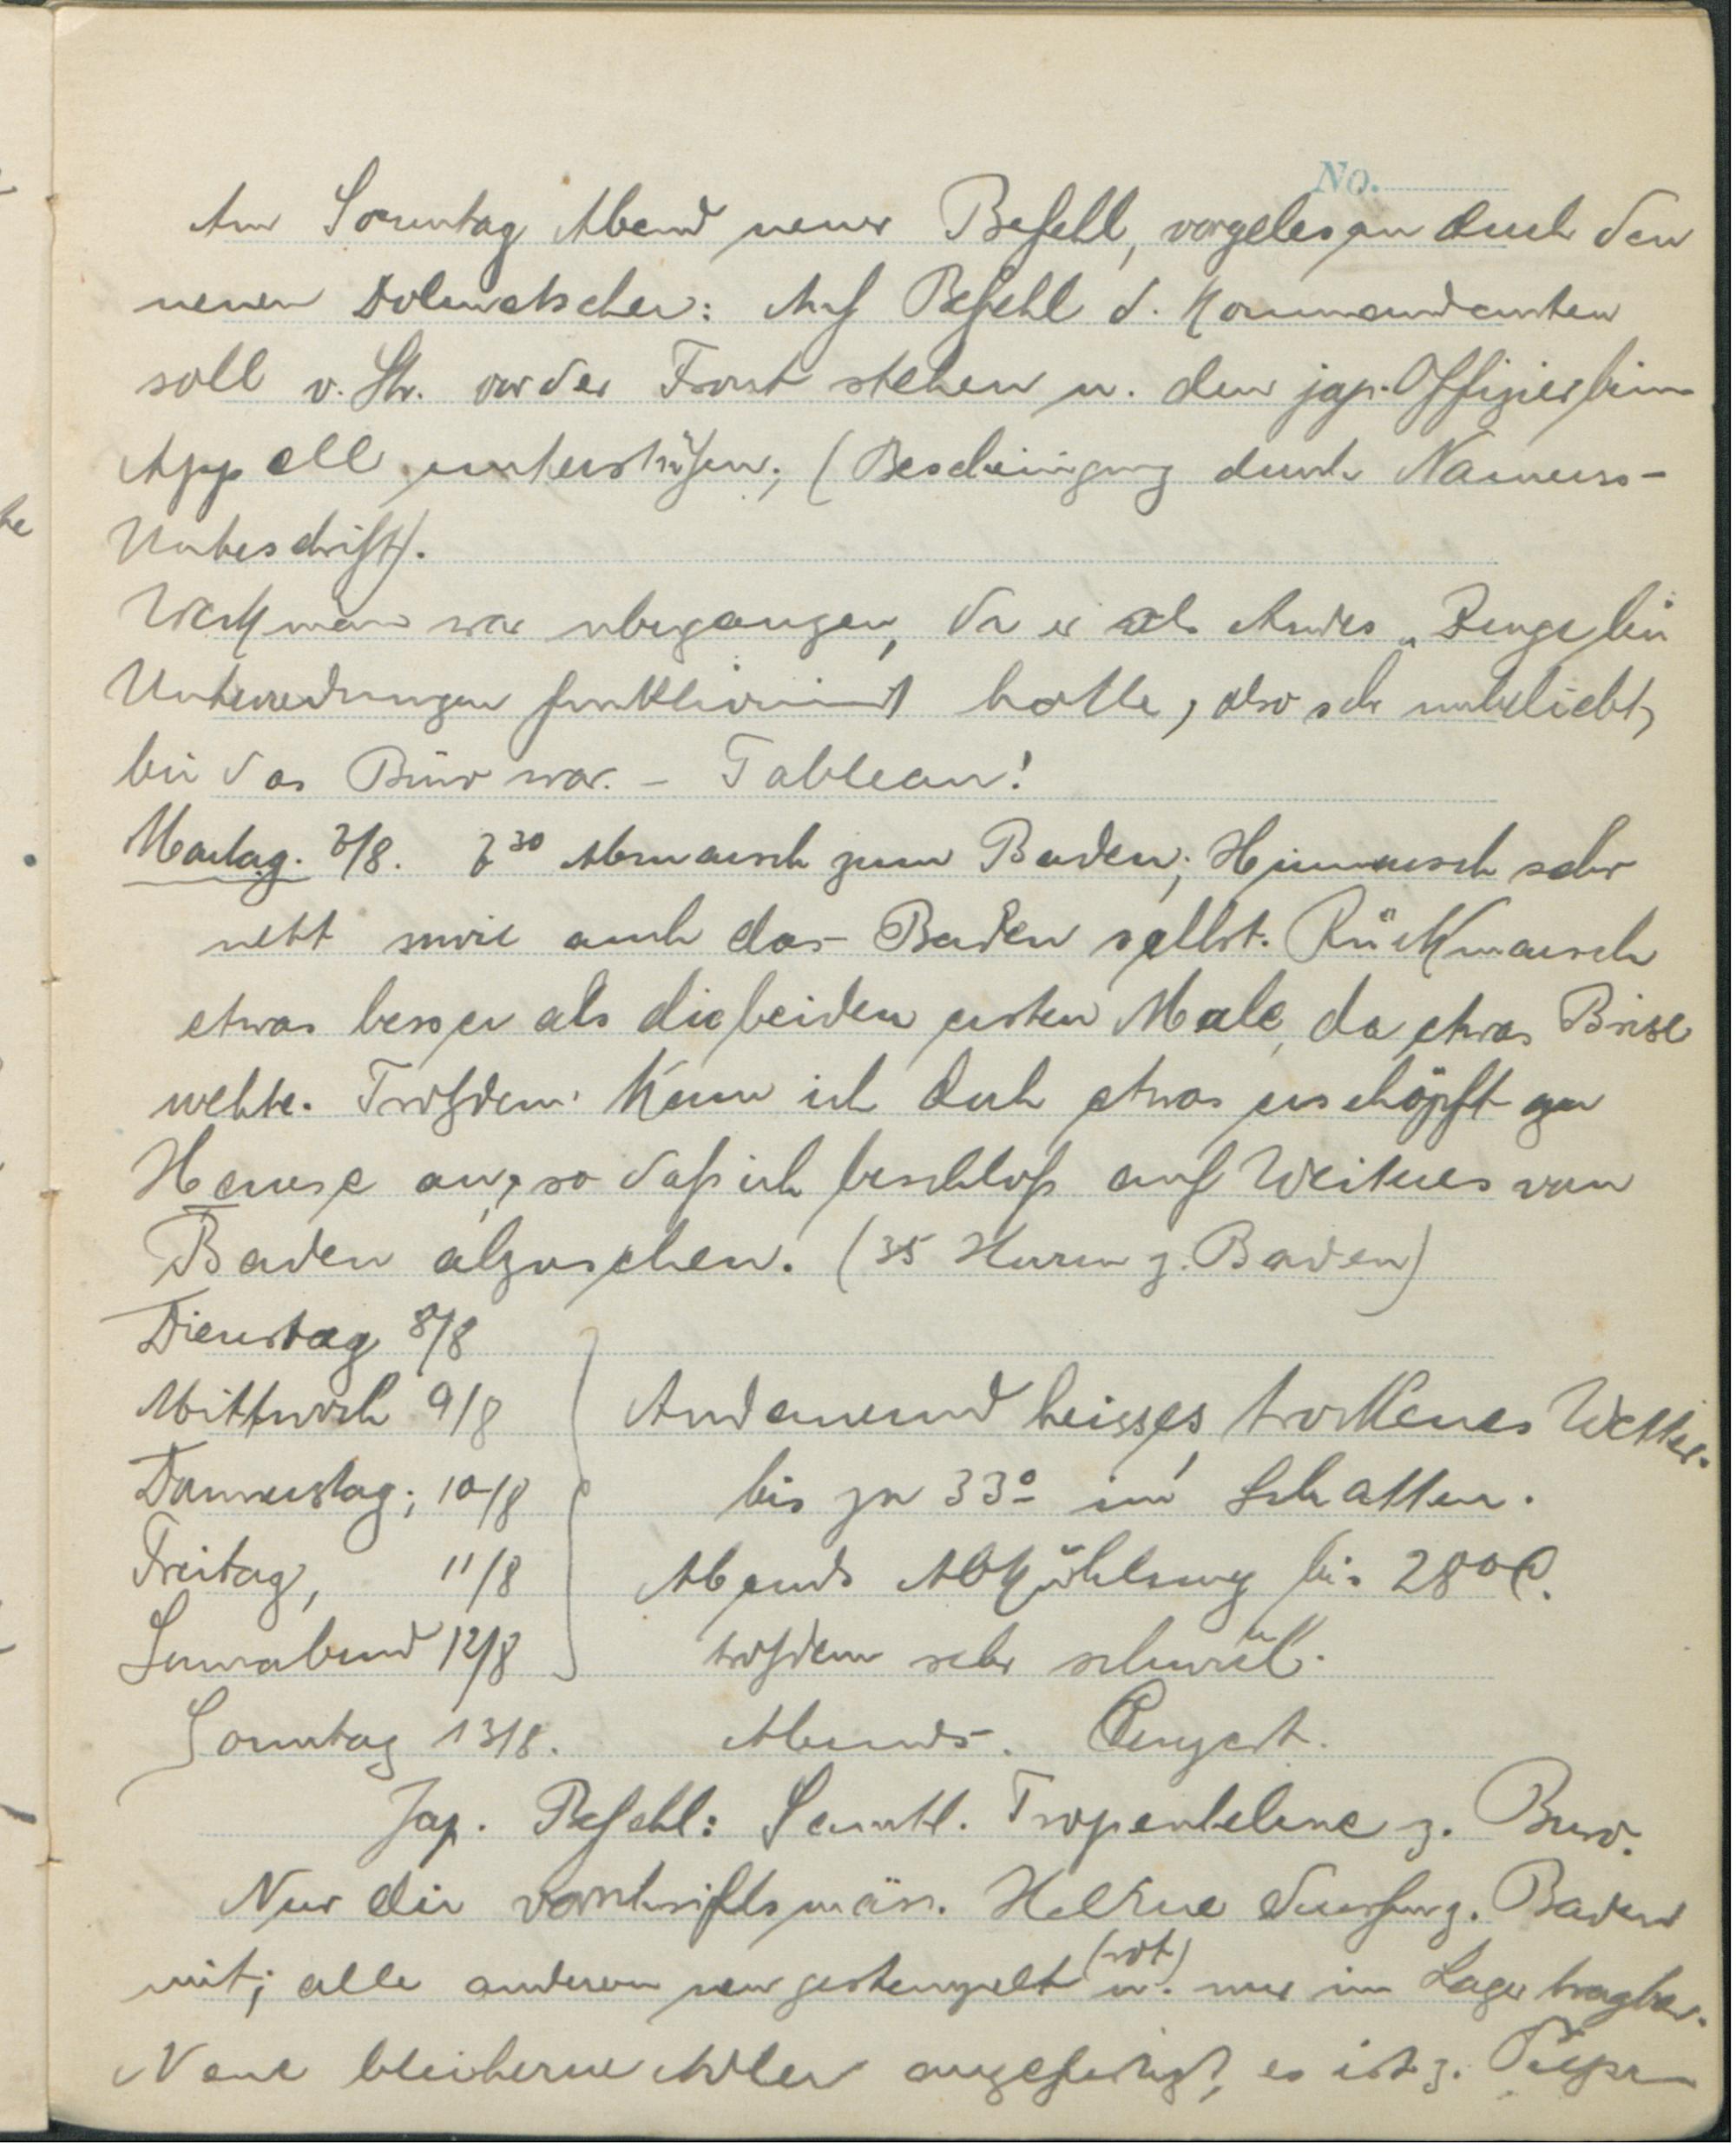 No.
Am Sonntag Abend neuer Befehl, vorgelesen durch den
neuen Dolmetscher: Auf Befehl d. Kommandanten
soll v. Str. vor der Front stehen u. den jap. Offizier beim
Appell unterstützen; (Bescheinigung durch Namens-
Unterschrift).
war übergangen, da er als „Zeuge bei
Unterredungen funktioniert hatte, also sehr unbeliebt,
bei das Büro war. - Tableau!
Montag. 7/8. 7 30 Abmarsch zum Baden; Hinmarsch sehr
nett sowie auch das Baden selbst. Rückmarsch
etwas besser als die beiden ersten Male, da etwas Brise
wehte. Trotzdem kam ich doch etwas erschöpft zu
Hause an, so daß ich beschloß auf Weiteres vom
Baden abzusehen. (35 z. Baden)
Dienstag 8/8
Mittwoch 9/8 Andauernd heisses, trockenes Wetter.
Donnerstag; 10/8 bis zu 33° im Schatten.
Freitag, 11/8 Abends Abkühlung bis 28°C.
Sonnabend 12/8 trotzdem sehr schwül.
Sonntag 13/8. Abends.
Jap. Befehl: Sämtl. Tropenhelme z. Büro.
Nur die vorschriftsmäss. Helme dürfen z. Baden
mit; alle anderen neu gestempelt (rot) u. nur im Lager tragbar.
Neue bleiherne Adler angefertigt, es ist z.